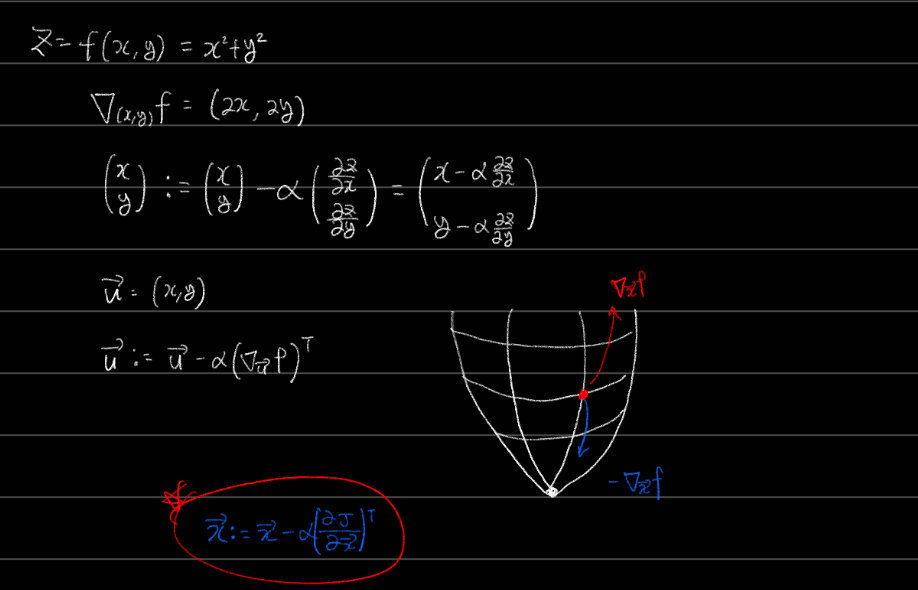 z = f(x,y) = x²+y²
∇₍ₓ,ᵧ₎f = (2x, 2y)
(x y) := (x y) − α (∂z/∂x ∂z/∂y) = (x − α ∂z/∂x y − α ∂z/∂y)
u⃗ = (x,y)
u⃗ := u⃗ − α(∇u⃗ f)ᵀ
∇x⃗ f
−∇x⃗ f
x⃗ := x⃗ − α(∂J/∂x⃗)ᵀ